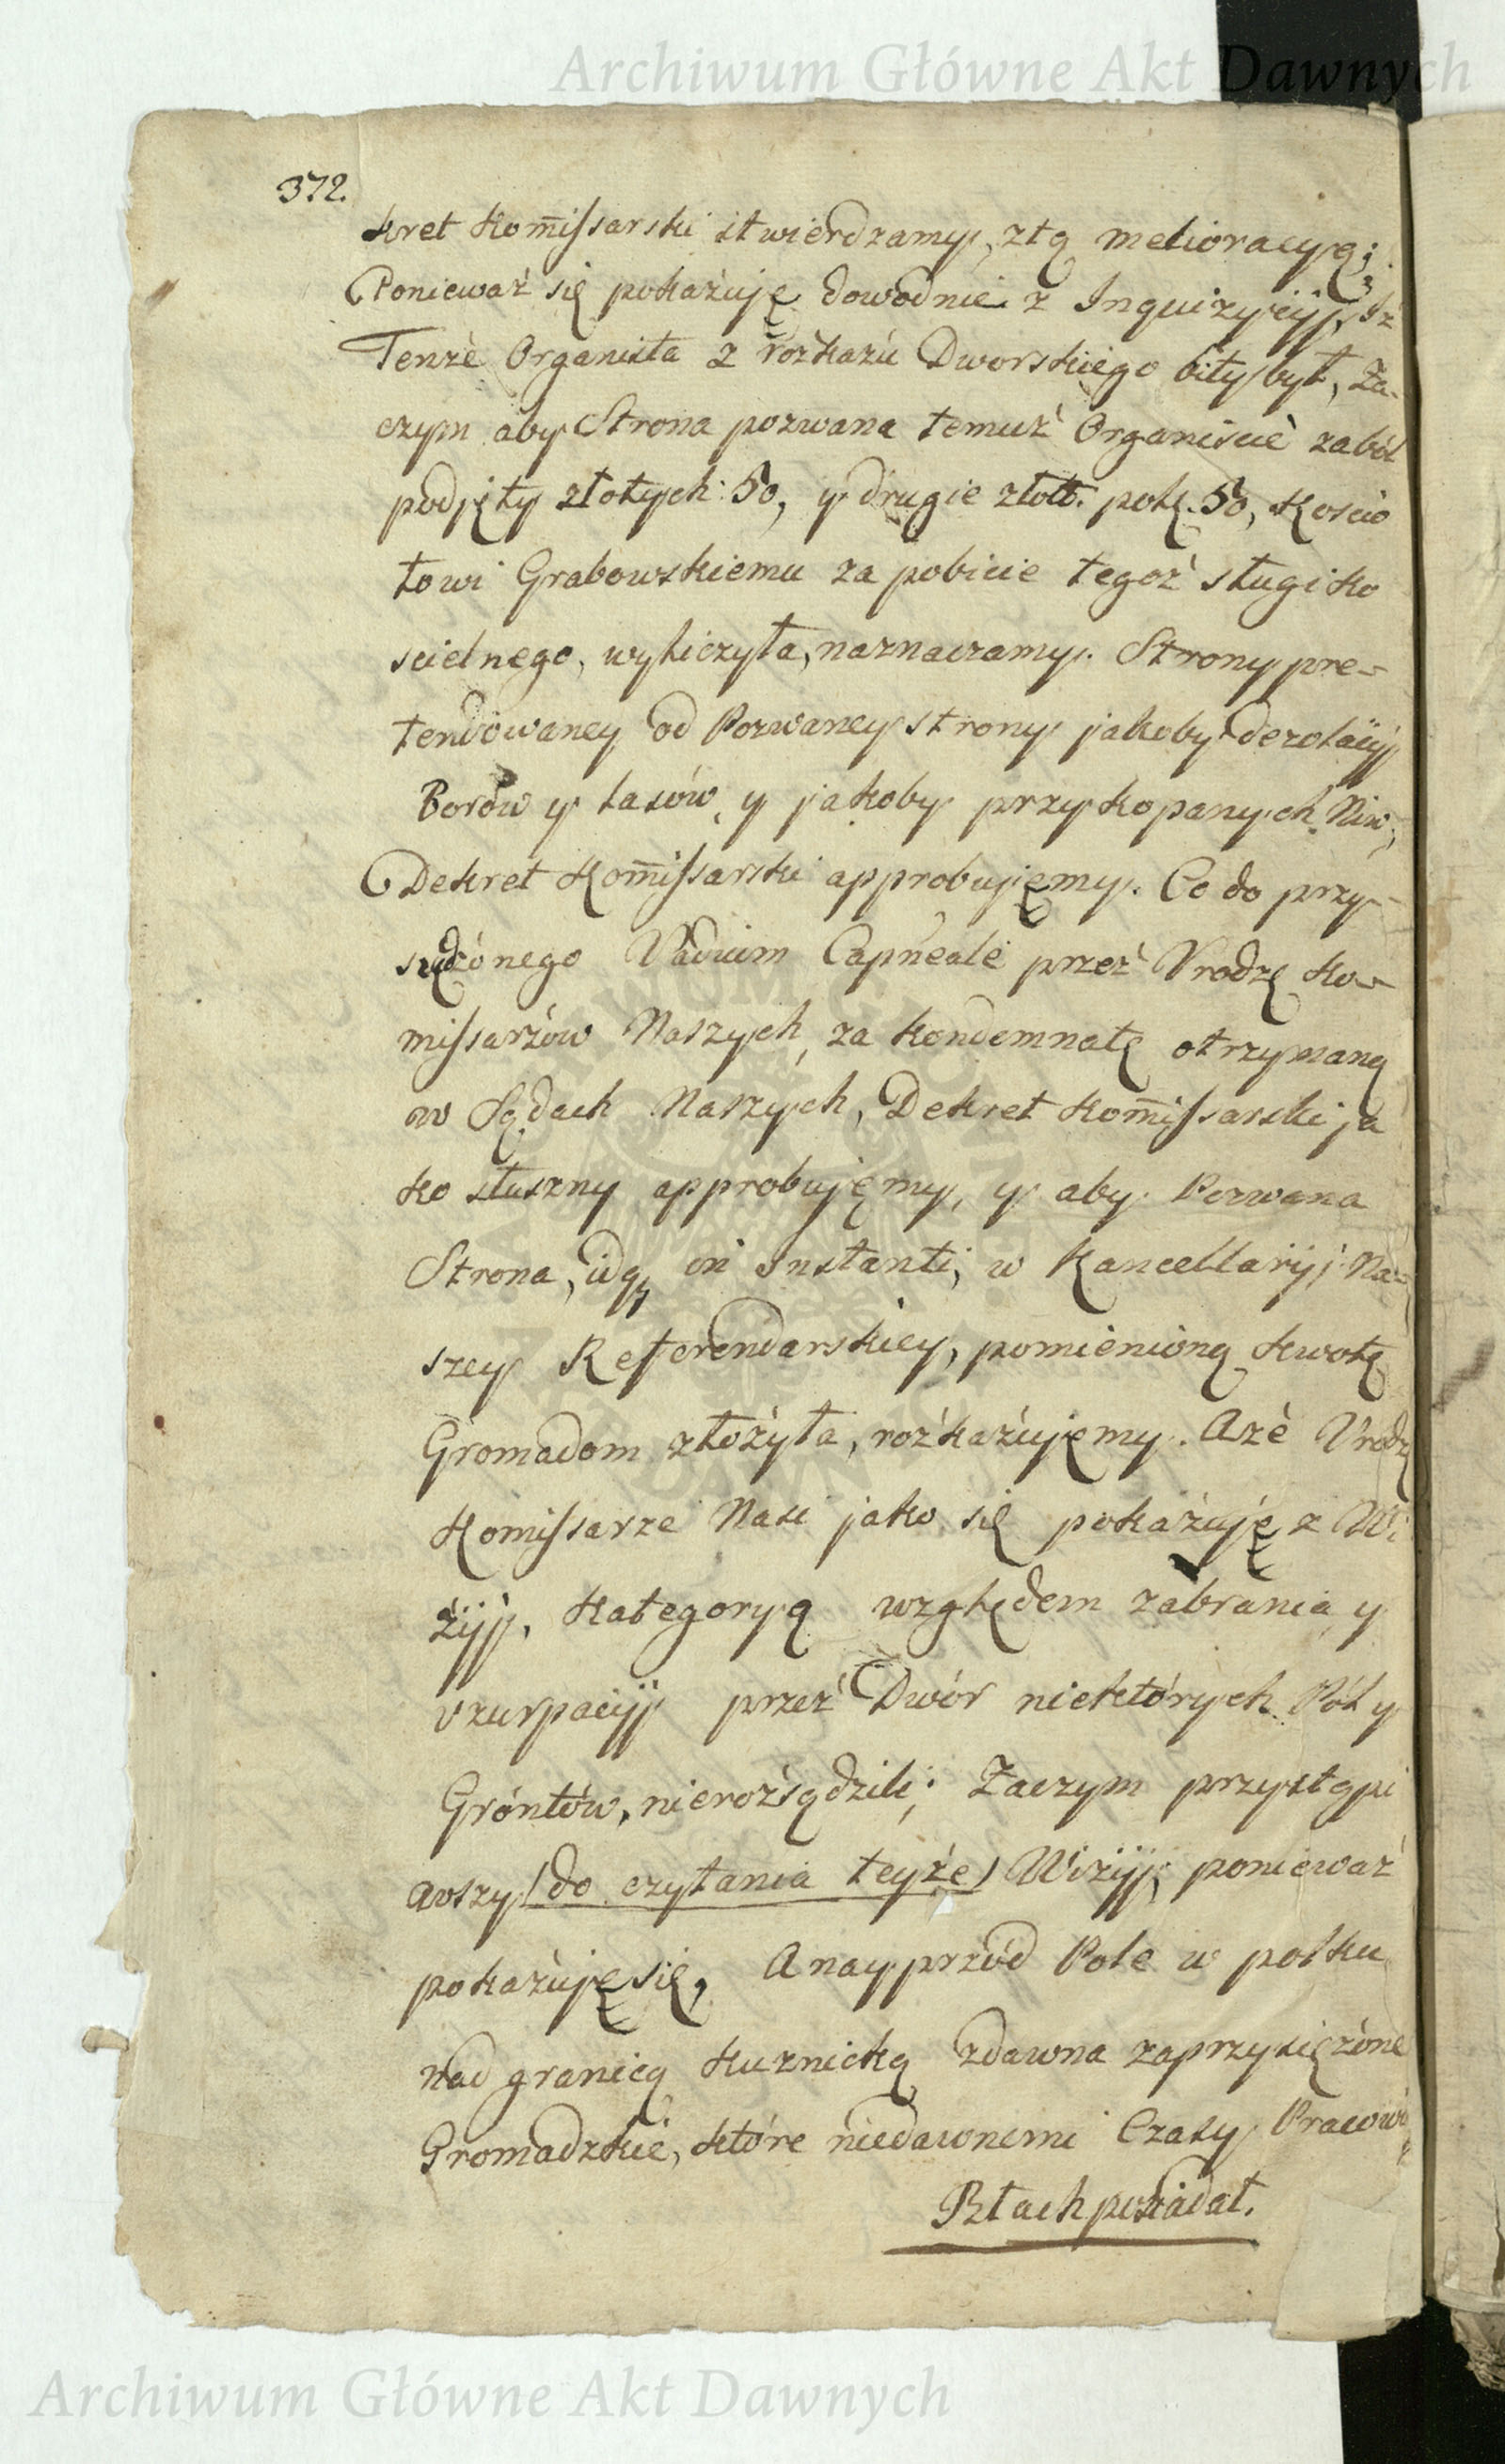 Archiwum Główne Akt Dawnych
372.
kret Kom̃issarski stwierdzamy, ztą melioracyą;
Ponieważ się pokażuię dowodnie z Inquizycyj, Iż
Tenże Organista z rozkazu Dworskiego bity był, Za-
czym aby Strona pozwana temuż Organiscie za ból
podjęty złotych: 50, y drugie złott. pol. 50, Koscio
łowi Grabowskiemu za pobicie tegoż sługi ko
scielnego, wyliczyła, naznaczamy. Strony pre-
tendowaney od Pozwaney strony jakoby dezolacyj
Borów y lasów, y jakoby przykopanych Niw,
Dekret Kom̃issarski approbujęmy. Co do przy-
sądzónego Vadium Capneale przez Vrodzę Ko-
missarzów Naszych, za kondemnatę otrzymaną
w Sądach Naszych, Dekret Kom̃issarski ja
ko słuszny approbujęmy, y aby Pozwana
Strona, idq, in Instanti, w Kancellaryj Na-
szey Referendarskiey, pomienioną kwotę
Gromadom złożyła, rozkażujęmy. Aże Vrodz
Komissarze Nasi jako się pokażuję z Wi
żyj, kategoryą względem zabrania y
vzurpacyj przez Dwór niektórych Pól y
Gróntów, nierozsądzili; Zaczym przystąpi
wszy (do czytania teyże) Wizyj, ponieważ
pokażuję się, A nayprzód Pole w polku
nad granicą Kuznicką zdawna zaprzysiężóne
Gromadzkie, które niedawnemi Czasy Pracowi
Ptach posiadał.
Archiwum Główne Akt Dawnych